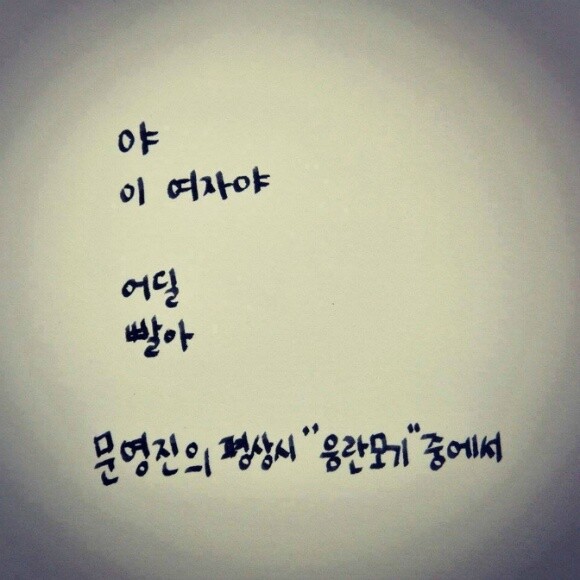 야
이 여자야
어딜
빨아
문영진의 평상시 "응란모기" 중에서